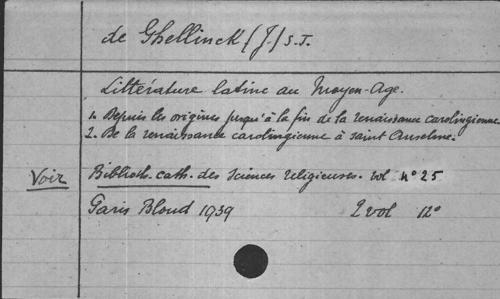 de Ghellinck (J.) S.J.
Littérature latine au Moyen-Age.
1. Depuis les origines jusqu'à la fin de la renaissance carolingienne
2. De la renaissance carolingienne à saint Anselme.
Voir Biblioth. cath. des sciences religieuses. vol n° 25
Paris Bloud 1939 2 vol 12°